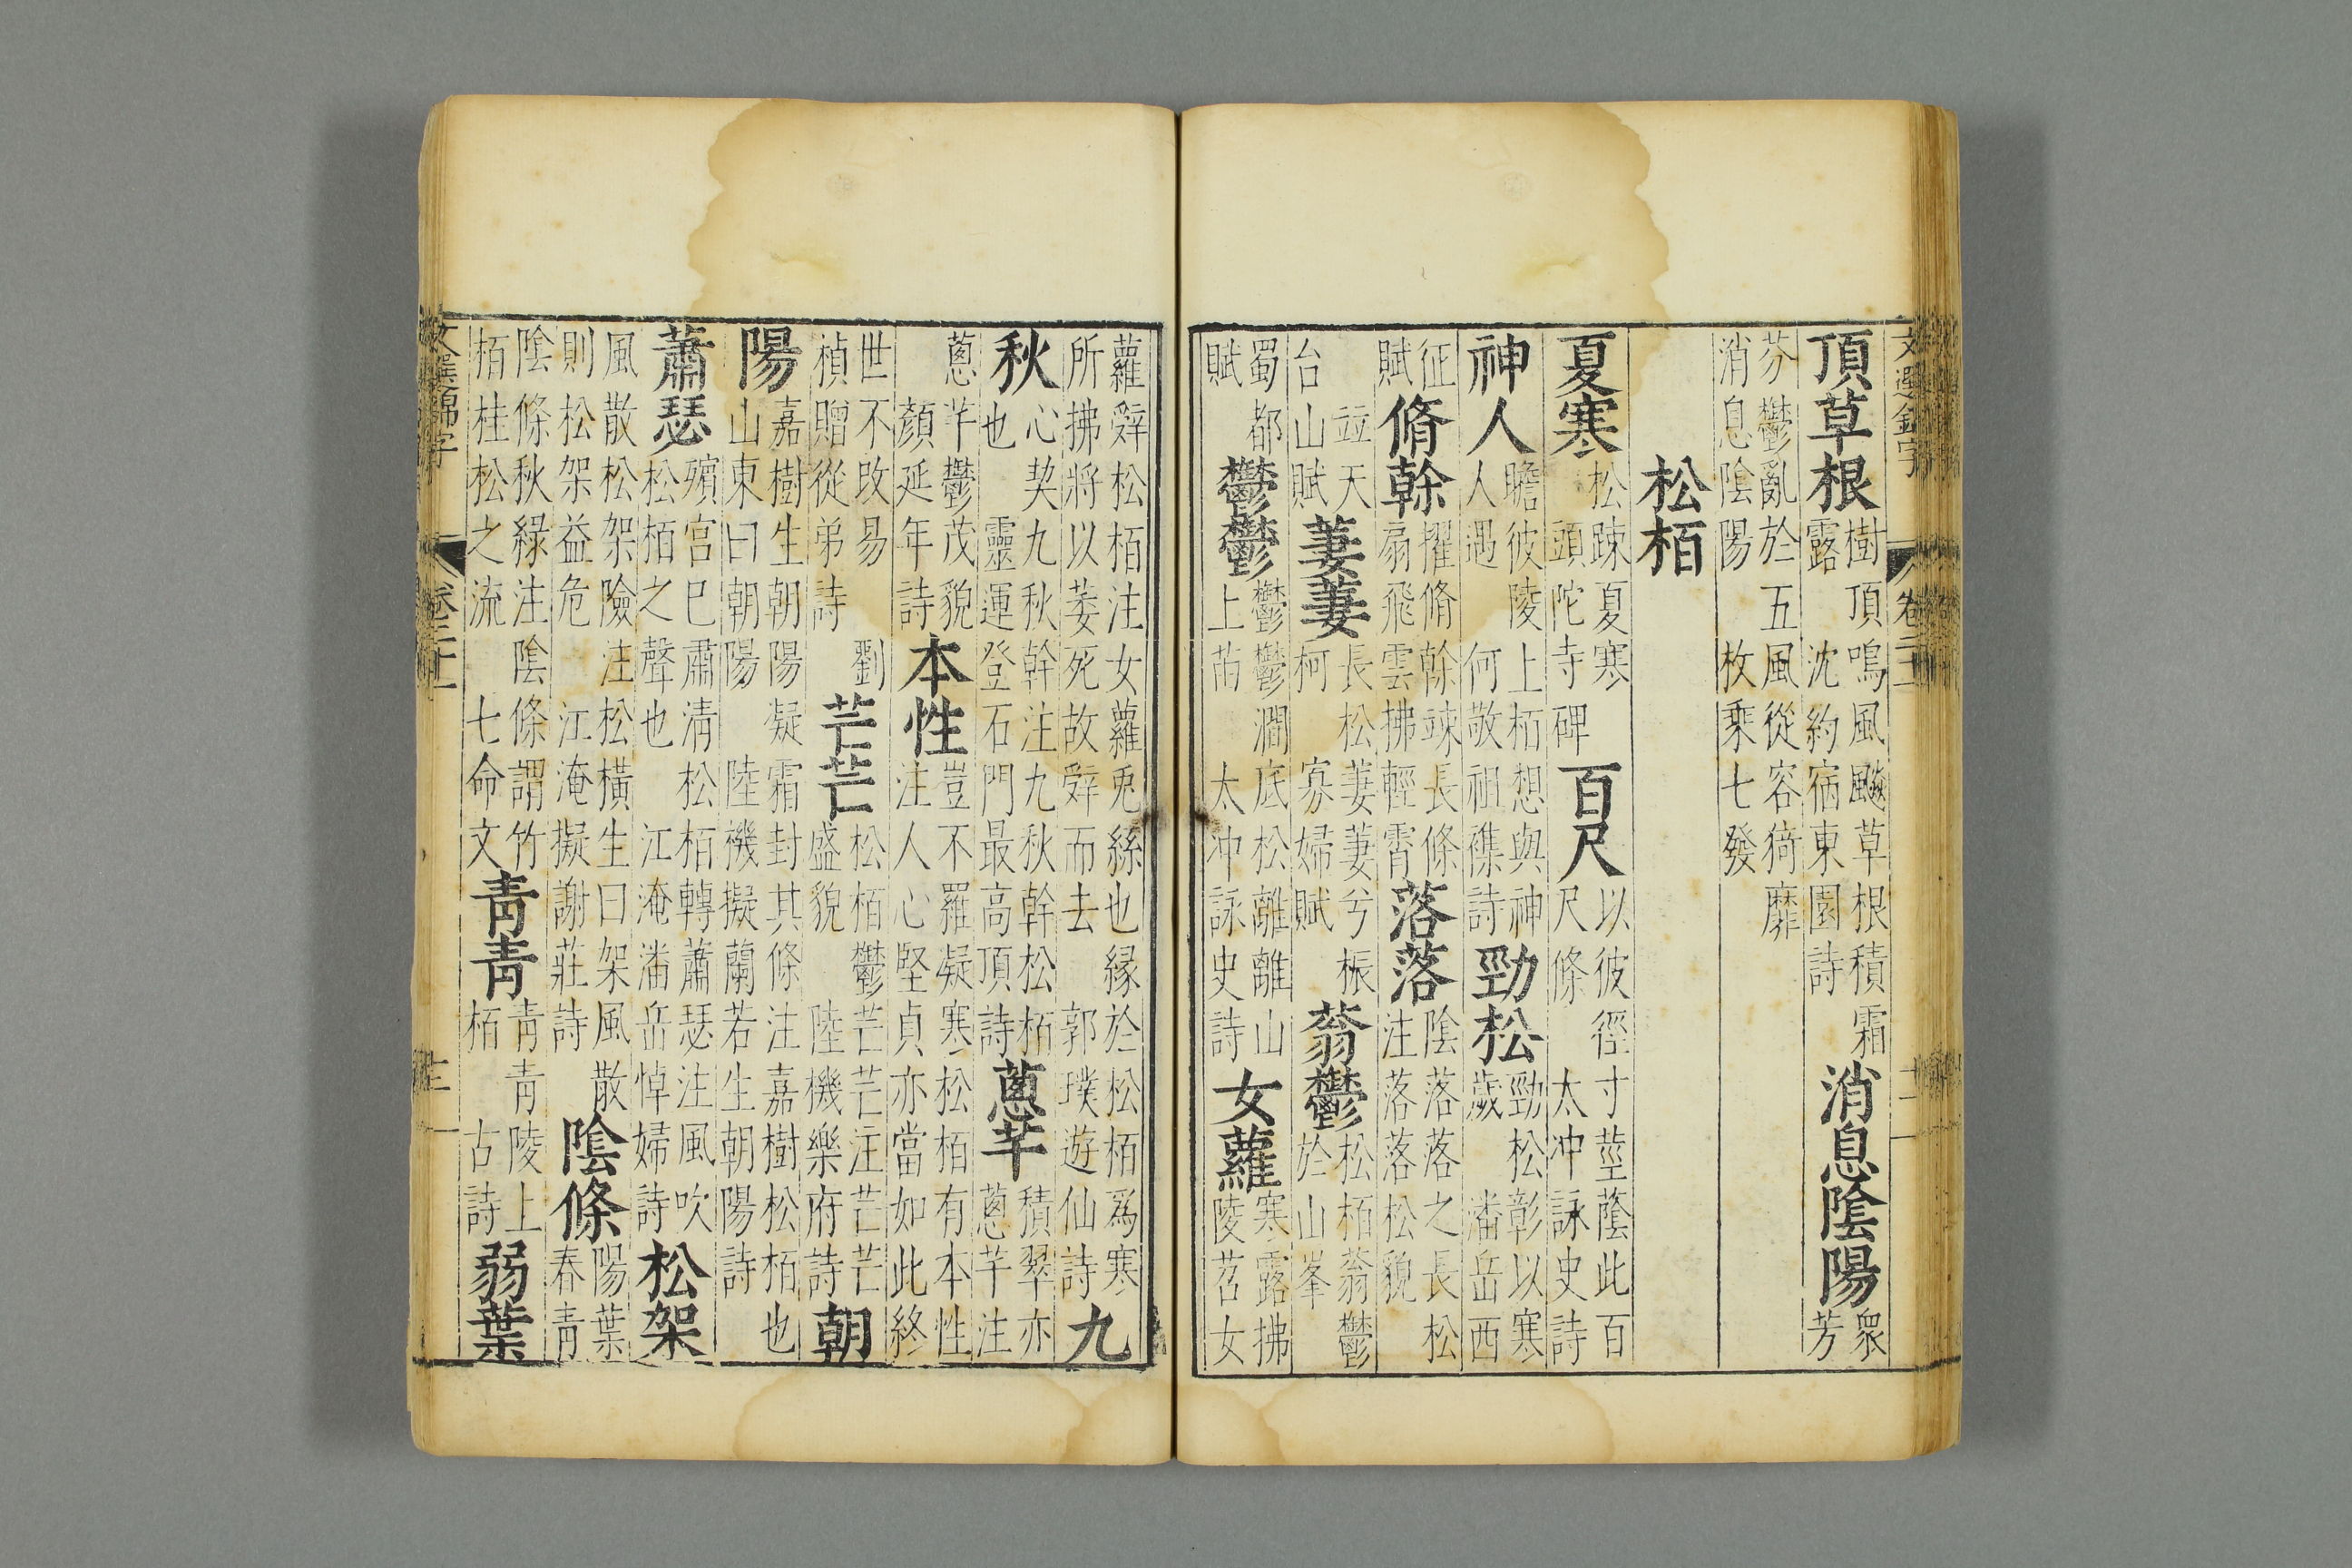 文選錦字 卷二十一 十一
頂草根 樹頂鳴風飈草根積霜露 沈約宿東園詩 消息隂陽 衆芳
芬鬱亂於五風從容猗靡消息陰陽 枚乗七發
松栢
夏寒 松踈夏寒 頭陀寺碑 百尺 以彼徑寸莖蔭此百尺條 太冲詠史詩
神人 瞻彼陵上栢想與神人遇 何敬祖襍詩 勁松 勁松彰以寒歲 潘岳西
征賦 脩榦 擢脩榦竦長條扇飛雲拂輕霄 落落 陰落落之長松注落落松貌
竝天台山賦 萋萋 長松萋萋兮振柯 寡婦賦 蓊鬱 松栢蓊鬱於山峯
蜀都賦 鬱鬱 鬱鬱澗底松離離山上苗 太冲詠史詩 女蘿 寒露拂陵苕女
蘿辤松栢注女蘿兎絲也縁於松栢爲寒所拂將以萎死故辤而去 郭璞遊仙詩 九
秋 心契九秋幹注九秋幹松栢也 靈運登石門最高頂詩 蔥芊 積翠亦蔥芊注
蔥芊鬱茂貌 顏延年詩 本性 豈不羅凝寒松栢有本性注人心堅貞亦當如此終
世不改易 劉楨贈從弟詩 芒芒 松栢鬱芒芒注芒芒盛貌 陸機樂府詩 朝
陽 嘉樹生朝陽凝霜封其條注嘉樹松栢也山東曰朝陽 陸機擬蘭若生朝陽詩
蕭瑟 殯宮巳肅清松栢轉蕭瑟注風吹松栢之聲也 江淹潘岳悼婦詩 松架
風散松架險注松橫生曰架風散則松架益危 江淹擬謝莊詩 隂條 陽葉春青
隂條秋緑注隂條謂竹栢桂松之流 七命文 青青 青青陵上栢 古詩 弱葉
文選錦字 卷二十一 十一